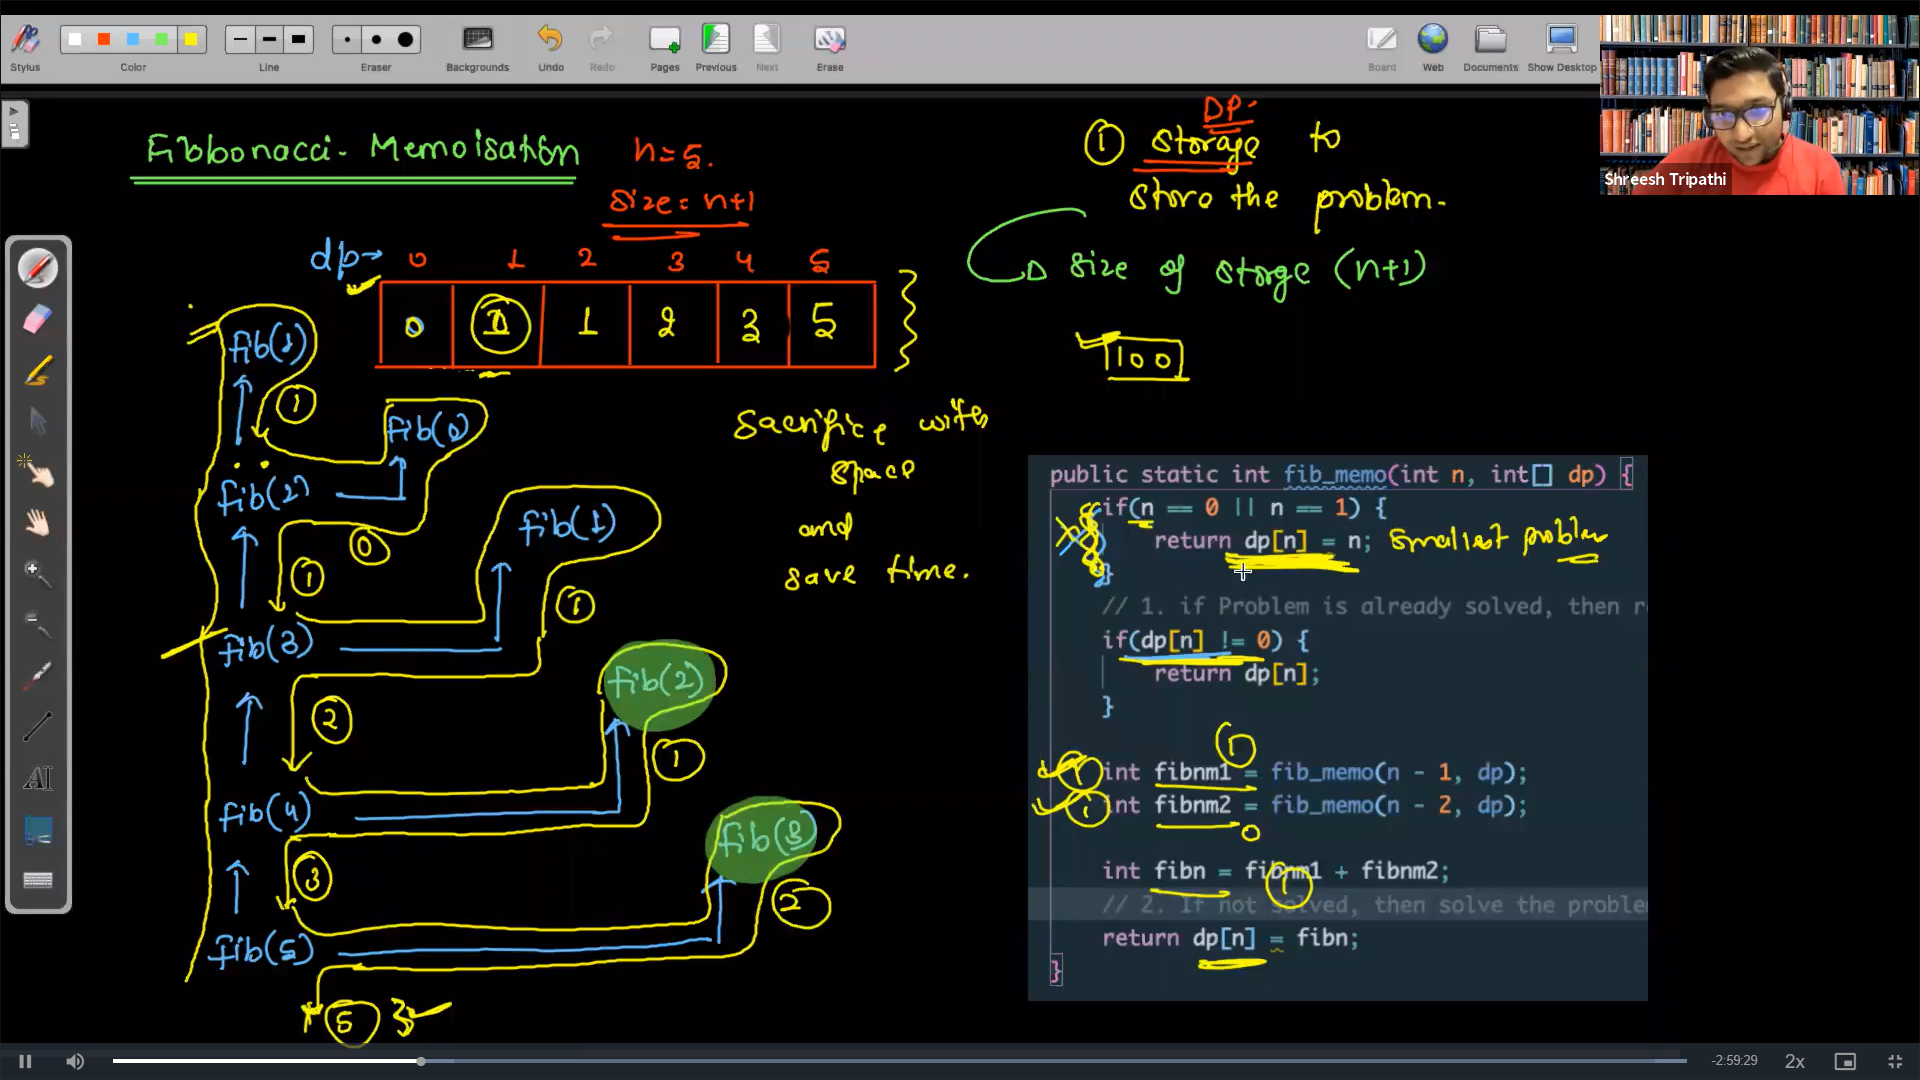 Stylus
Color
Line
Eraser
Backgrounds
Undo
Redo
Pages
Previous
Next
Erase
Board
Web
Documents
Show Desktop
Shreesh Tripathi
Fibbonacci - Memoisation
n=5.
size = n+1
dp→ 0 1 2 3 4 5
0 1 1 2 3 5
DP.
① storage to
store the problem.
size of storge (n+1)
100
Sacrifice with
space
and
save time.
fib(1)
1
fib(0)
fib(2)
0
1
fib(1)
1
fib(3)
2
fib(2)
1
fib(4)
3
fib(3)
2
fib(5)
5
public static int fib_memo(int n, int[] dp) {
if(n == 0 || n == 1) {
return dp[n] = n; Smallest problem
}
// 1. if Problem is already solved, then r
if(dp[n] != 0) {
return dp[n];
}
1
int fibnm1 = fib_memo(n - 1, dp);
int fibnm2 = fib_memo(n - 2, dp);
0
int fibn = fibnm1 + fibnm2;
1
// 2. If not solved, then solve the proble
return dp[n] = fibn;
}
-2:59:29
2x